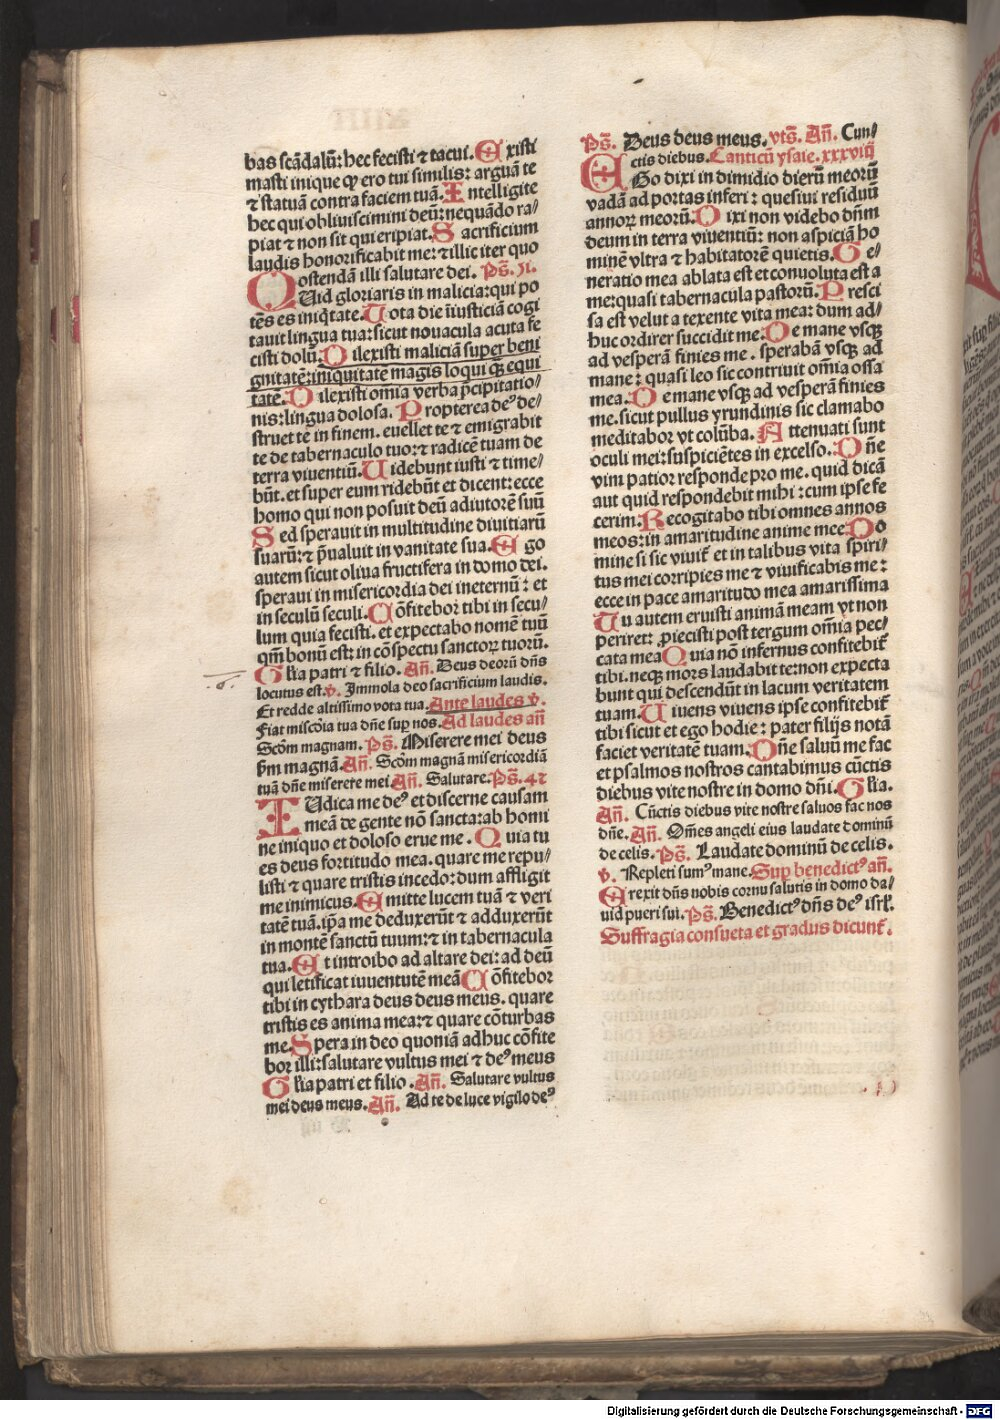 bas scādalū: hec fecisti ⁊ tacui. Existi
masti inique ꝙ ero tui similis: arguā te
⁊ statuā contra faciem tuā. Intelligite
hec qui obliuiscimini deū: nequādo ra/
piat ⁊ non sit qui eripiat. Sacrificium
laudis honorificabit me: ⁊ illic iter quo
ostendā illi salutare dei. Ps̄. .li.
Quid gloriaris in malicia: qui po
tēs es iniq̄tate. Tota die iīusticiam cogi
tauit lingua tua: sicut nouacula acuta fe
cisti dolū. Dilexisti maliciā super beni
gnitatē: iniquitatē magis loqui qꝫ equi
tatē. Dilexisti om̄ia verba p̄cipitatio/
nis: lingua dolosa. Propterea de⁹ de/
struet te in finem. euellet te ⁊ emigrabit
te de tabernaculo tuo: ⁊ radicē tuam de
terra viuentiū. Uidebunt iusti ⁊ time/
būt. et super eum ridebūt et dicent: ecce
homo qui non posuit deū adiutorē suū
Sed sperauit in multitudine diuitiarū
suarū: ⁊ p̄ualuit in vanitate sua. Ego
autem sicut oliua fructifera in domo dei.
speraui in misericordia dei ineternū: et
in seculū seculi. Cōfitebor tibi in secu/
lum quia fecisti. et expectabo nomē tuū
qm̄ bonū est: in cōspectu sanctoꝝ tuorū.
Gl̄ia patri ⁊ filio. Añ. Deus deorū dn̄s
locutus est. v̄. Immola deo sacrificium laudis.
Et redde altissimo vota tua. Ante laudes v̄.
Fiat misc̄oia tua dn̄e sup nos. Ad laudes añ
Scd̄m magnam. Ps̄. Miserere mei deus
ſm magnā. Añ. Scd̄m magnā misericordiā
tuā dn̄e miserere mei Añ. Salutare. Ps̄. 42
IUdica me de⁹ et discerne causam
meā de gente nō sancta: ab homi
ne iniquo et doloso erue me. Quia tu
es deus fortitudo mea. quare me repu/
listi ⁊ quare tristis incedo: dum affligit
me inimicus. Emitte lucem tuā ⁊ veri
tatē tuā. ip̄a me deduxerūt ⁊ adduxerūt
in montē sanctū tuum: ⁊ in tabernacula
tua. Et introibo ad altare dei: ad deū
qui letificat iuuentutē meā Cōfitebor
tibi in cythara deus deus meus. quare
tristis es anima mea: ⁊ quare cōturbas
me. Spera in deo quoniā adhuc cōfite
bor illi: salutare vultus mei ⁊ de⁹ meus
Gl̄ia patri et filio. Añ. Salutare vultus
mei deus meus. Añ. Ad te de luce vigilo de⁹
Ps̄. Deus deus meus. vts̄. Añ. Cun/
ctis diebus. Canticū ysaie. xxxviij
EGo dixi in dimidio dierū meorū
vadā ad portas inferi: quesiui residuū
annoꝝ meorū. Dixi non videbo dn̄m
deum in terra viuentiū: non aspiciā ho
minē vltra ⁊ habitatorē quietis. Ge/
neratio mea ablata est et conuoluta est a
me: quasi tabernacula pastorū. Presci
sa est velut a texente vita mea: dum ad/
huc ordirer succidit me: De mane vsqꝫ
ad vesperā finies me. sperabā vsqꝫ ad
mane: quasi leo sic contriuit om̄ia ossa
mea. De mane vsqꝫ ad vesperā finies
me. sicut pullus yrundinis sic clamabo
meditabor vt colūba. Attenuati sunt
oculi mei: suspiciētes in excelso. Dñe
vim patior responde pro me. quid dicā
aut quid respondebit mihi: cum ipse fe
cerim: Recogitabo tibi omnes annos
meos: in amaritudine anime mee. Do
mine si sic viuit̄ et in talibus vita spiri/
tus mei corripies me ⁊ viuificabis me:
ecce in pace amaritudo mea amarissima
Tu autem eruisti animā meam vt non
periret: proiecisti post tergum om̄ia pec/
cata mea Quia nō infernus confitebit̄
tibi. neqꝫ mors laudabit te: non expecta
bunt qui descendūt in lacum veritatem
tuam. Uiuens viuens ipse confitebit̄
tibi sicut et ego hodie: pater filijs notā
faciet veritatē tuam. Dñe saluū me fac
et psalmos nostros cantabimus cūctis
diebus vite nostre in domo dn̄i. Gl̄ia.
Añ. Cūctis diebus vite nostre saluos fac nos
dn̄e. Añ. Om̄es angeli eius laudate dominū
de celis. Ps̄. Laudate dominū de celis.
v̄. Repleti sum⁹ mane. Sup benedict⁹ añ.
Erexit dn̄s nobis cornu salutis in domo da/
uid pueri sui. Ps̄. Benedict⁹ dn̄s de⁹ isrl̄.
Suffragia consueta et gradus dicunt̄.
Digitalisierung gefördert durch die Deutsche Forschungsgemeinschaft - DFG